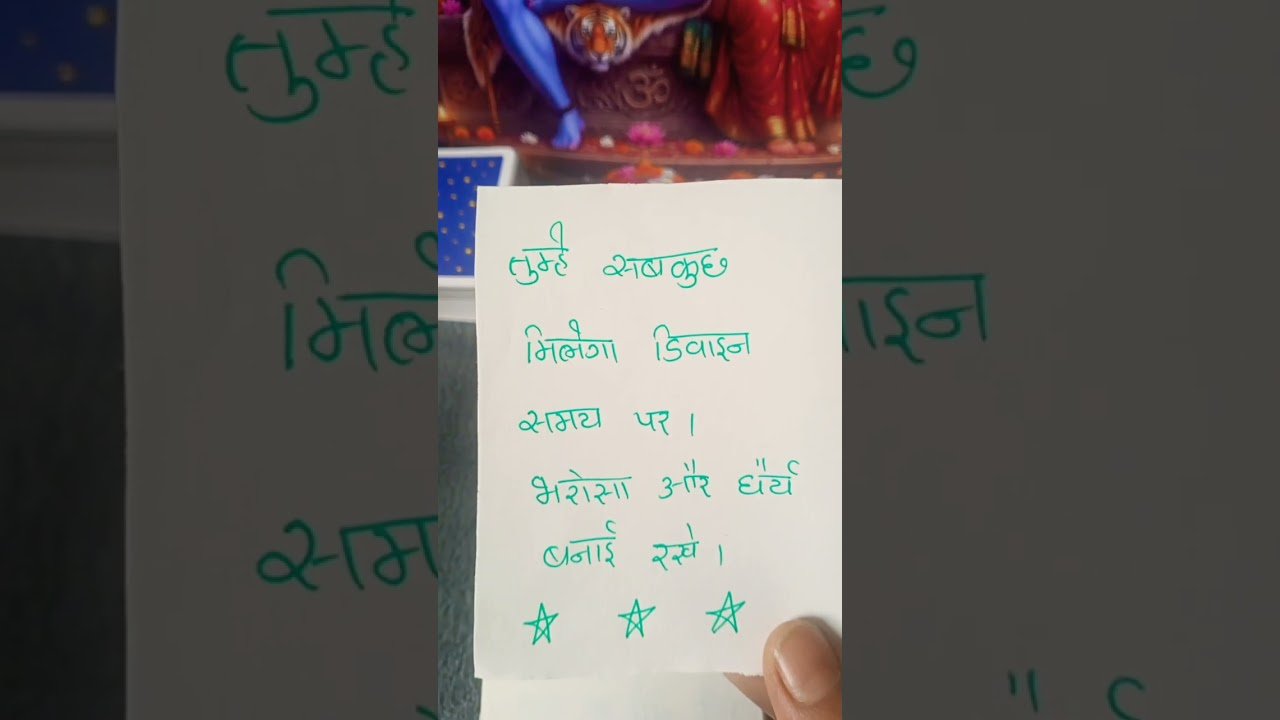 ॐ
तुम्हे सबकुछ
मिलेगा डिवाइन
समय पर।
भरोसा और धैर्य
बनाई रखे।